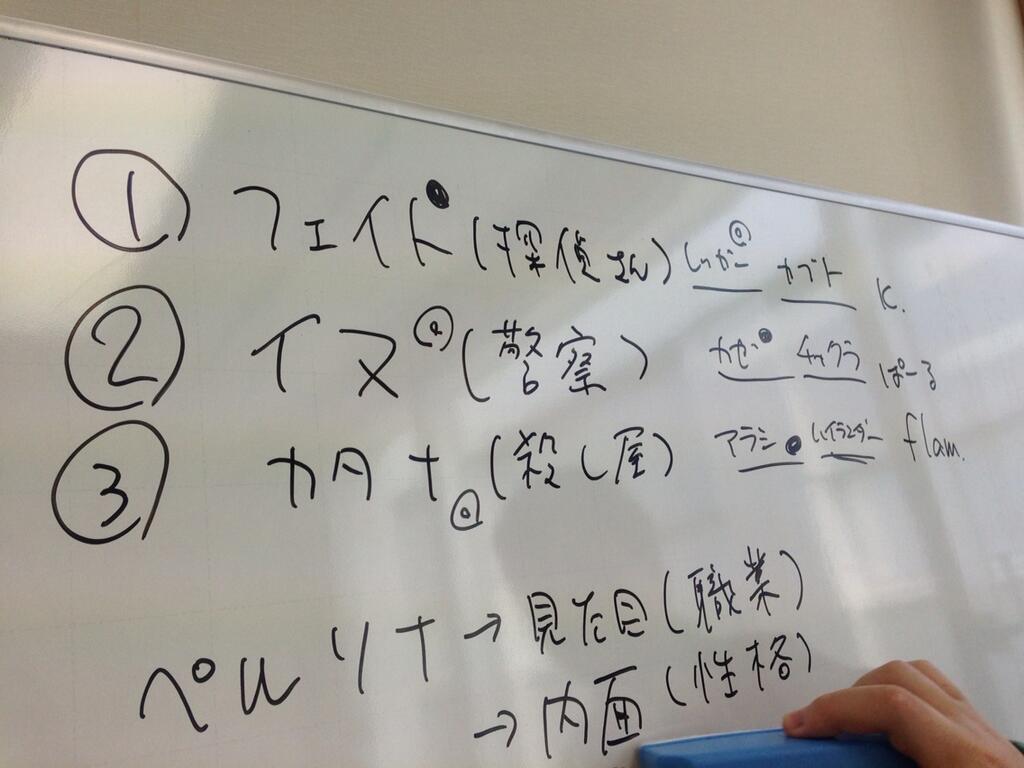 ① フェイド (探偵さん) しっがー カブト K.
② イヌ (警察) カセ チャクラ ぱーる
③ カタナ (殺し屋) アラシ ハイランダー flam.
ペルソナ → 見た目 (職業)
→ 内面 (性格)